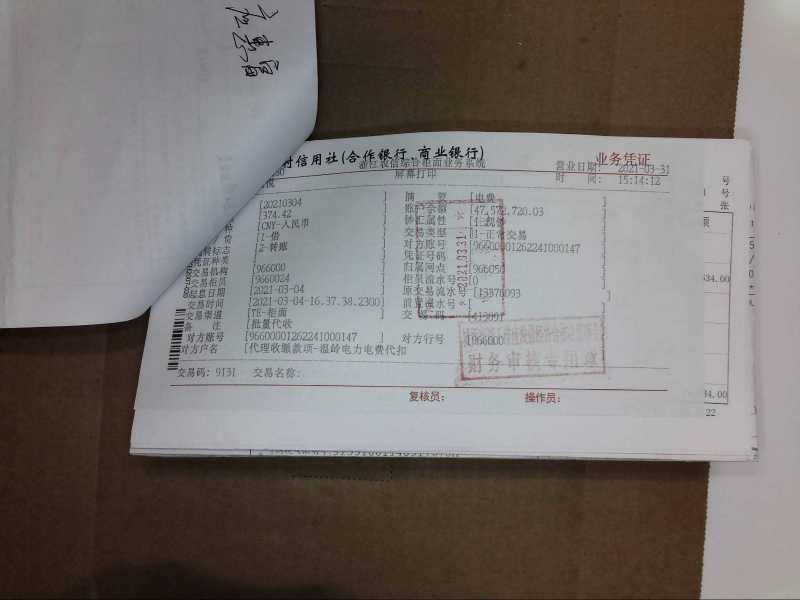 村信用社(合作银行、商业银行)
浙江农信综合柜面业务系统
屏幕打印
业务凭证
营业日期: 2021-03-31
时 间: 15:14:12
[20210304 ] 摘 要 [电费 ]
[374.42 ] 账户余额 [47,572,720.03
[CNY-人民币 ] 钞汇属性 [1-现钞
[1-借 ] 交易类型 [1-正常交易
转标志 [2-转账 ] 对方账号 [96600001262241000147
凭证种类 [ ] 凭证号码 [
交易机构 [966000 ] 归属网点 [966050
交易柜员 [9660024 ] 柜员流水号 [0
起息日期 [2021-03-04 ] 原交易流水号
交易时间 [2021-03-04-16.37.38.2300] 前置流水号 [
交易渠道 [TE-柜面 ] 交易码
备 注 [批量代收
对方账号 [96600001262241000147 ] 对方行号 [966000
对方户名 [代理收缴款项-温岭电力电费代扣
交易码: 9131 交易名称:
复核员: 操作员:
2021.03.31
财务审核专用章
号
号
张
额
534.00
34.00
22